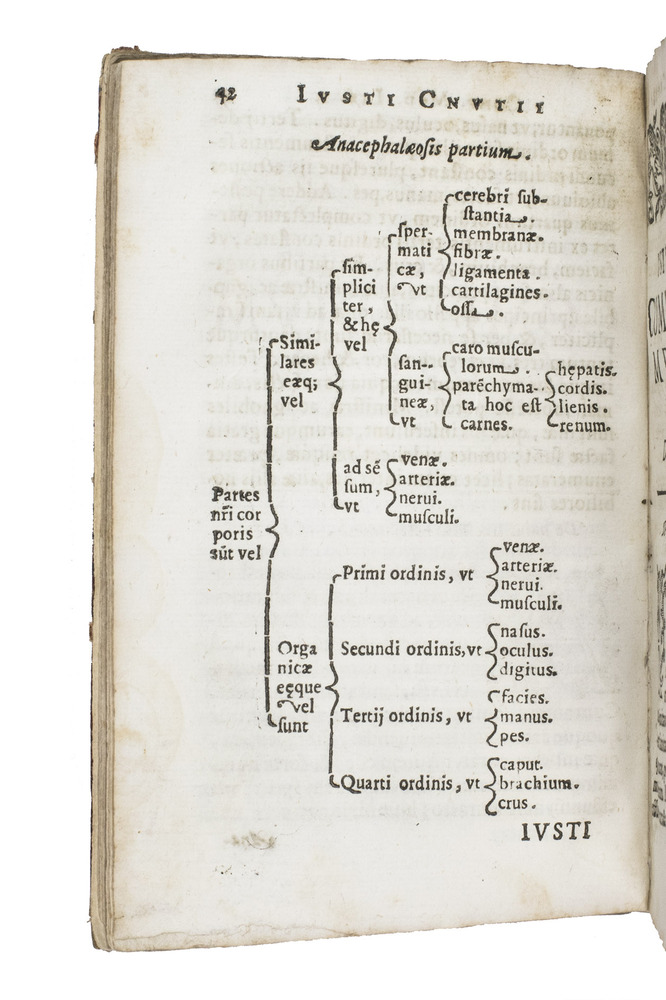 42 IVSTI CNVTII
Anacephalæosis partium.
Partes
nr̃i cor
poris
sũt vel
Simi-
lares
eæq;
vel
sim-
plici
ter,
& hę
vel
sper-
mati
cæ,
vt
cerebri sub-
stantia.
membranæ.
fibræ.
ligamenta.
cartilagines.
ossa.
san-
gui-
neæ,
vt
caro muscu-
lorum.
parẽchyma-
ta hoc est
carnes.
hępatis.
cordis.
lienis.
renum.
ad sẽ
sum,
vt
venæ.
arteriæ.
nerui.
musculi.
Orga
nicæ
eęque
vel
sunt
Primi ordinis, vt
venæ.
arteriæ.
nerui.
musculi.
Secundi ordinis, vt
nasus.
oculus.
digitus.
Tertij ordinis, vt
facies.
manus.
pes.
Quarti ordinis, vt
caput.
brachium.
crus.
IVSTI